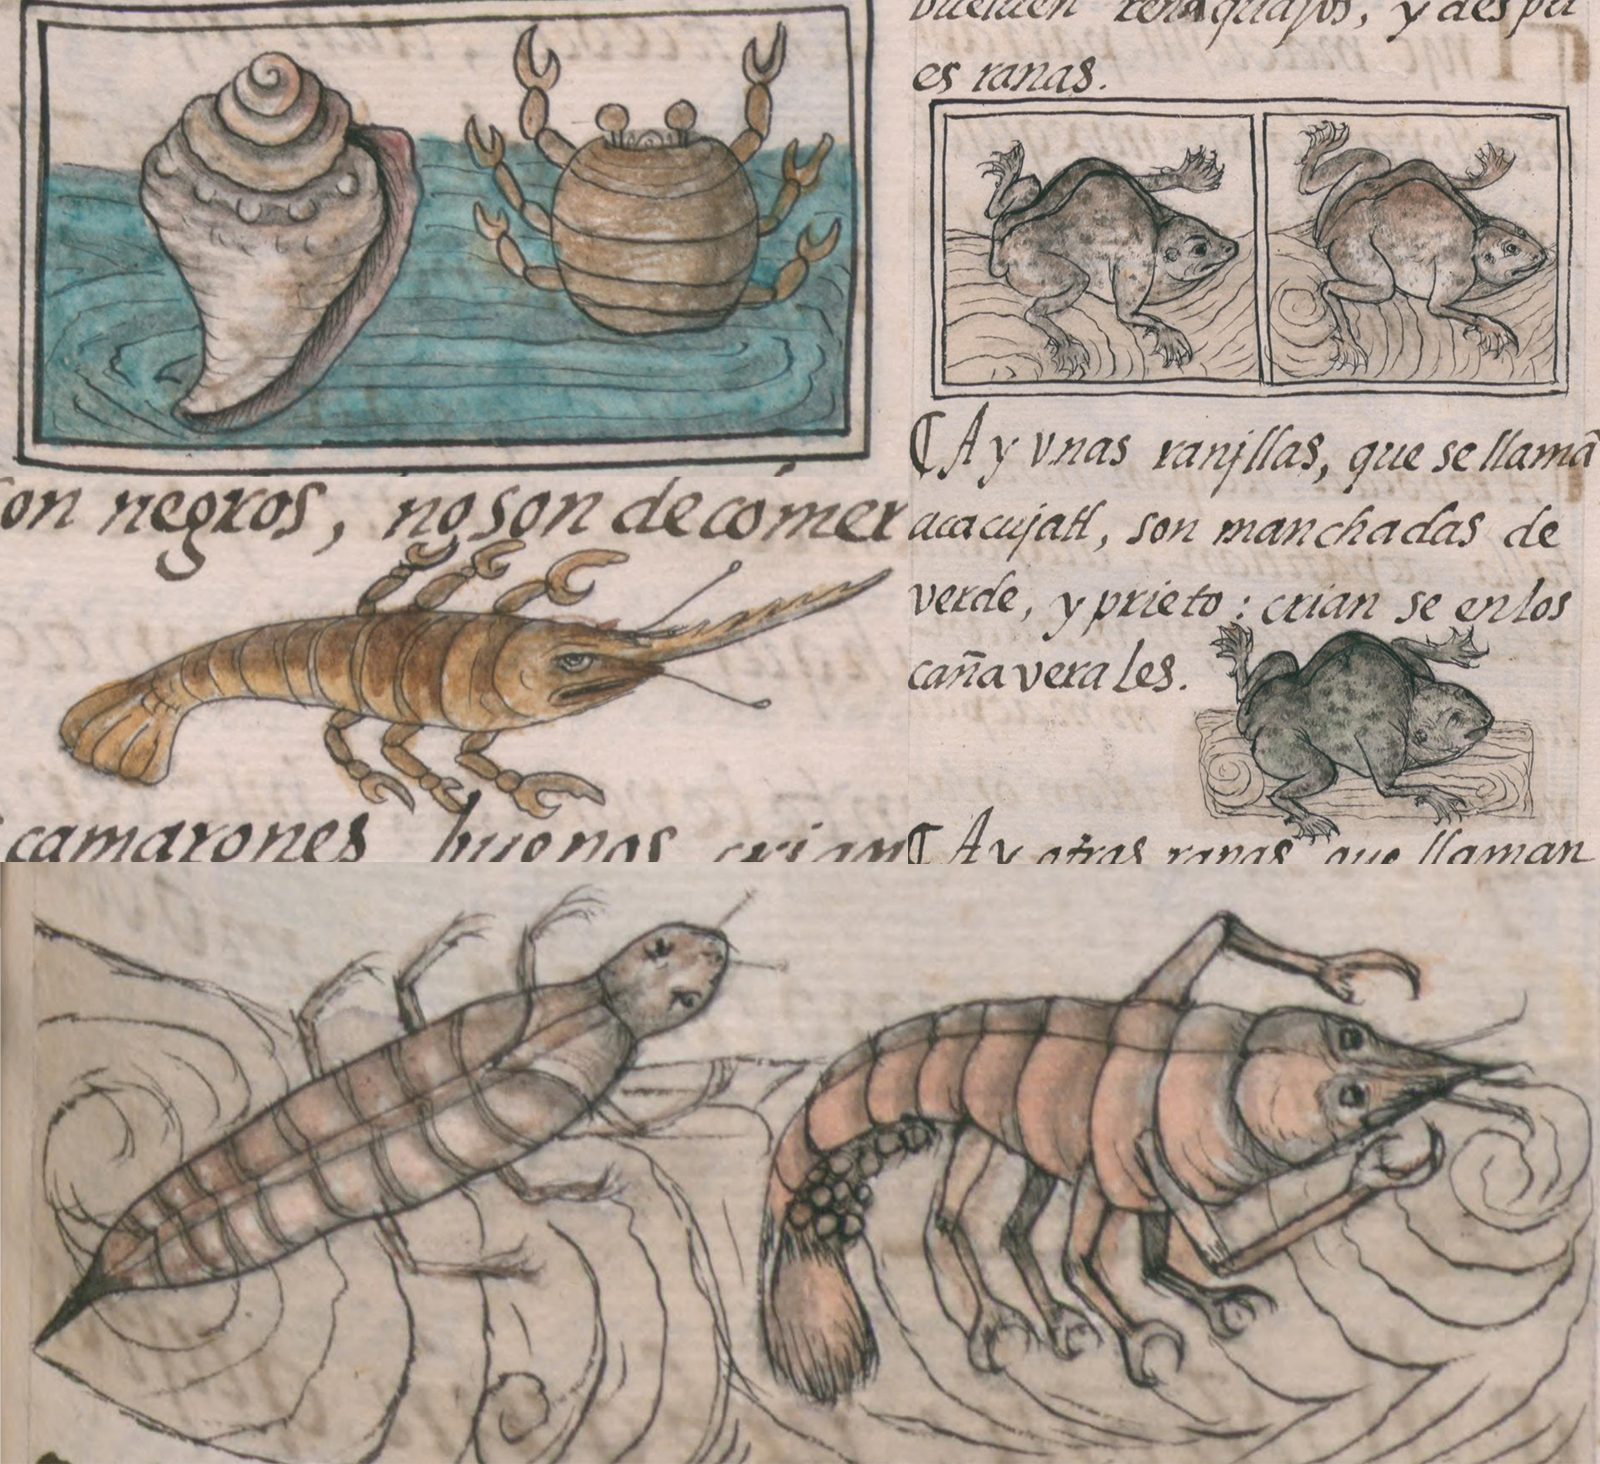 on negros, no son de comer
camarones buenos crian
bueluen renaquajos, y despu
es ranas.
¶ Ay vnas ranjllas, que se llamā
acacujatl, son manchadas de
verde, y prieto: crian se en los
cañaverales.
¶ Ay otras ranas que llaman